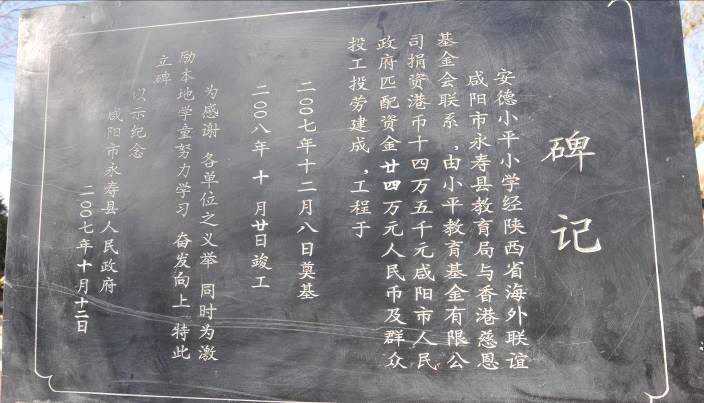 碑记
安德小平小学经陕西省海外联谊
咸阳市永寿县教育局与香港慈恩
基金会联系,由小平教育基金有限公
司捐资港币十四万五千元咸阳市人民
政府匹配资金廿四万元人民币及群众
投工投劳建成,工程于
二〇〇七年十二月八日奠基
二〇〇八年十月廿日竣工
为感谢 各单位之义举 同时为激
励本地学童努力学习 奋发向上 特此
立碑
以示纪念
咸阳市永寿县人民政府
二〇〇七年十月十二日